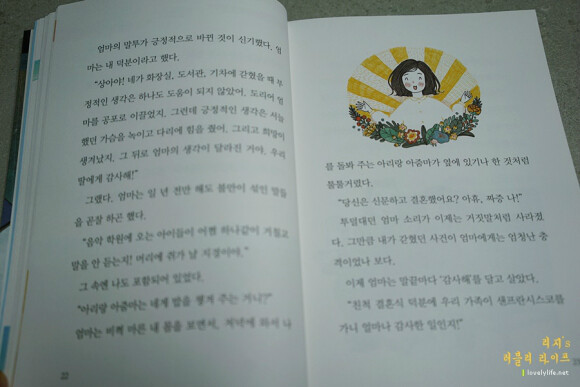 엄마의 말투가 긍정적으로 바뀐 것이 신기했다. 엄
마는 내 덕분이라고 했다.
"상아야! 네가 화장실, 도서관, 기차에 갇혔을 때 부
정적인 생각은 하나도 도움이 되지 않았어. 도리어 엄
마를 공포로 이끌었지. 그런데 긍정적인 생각은 서늘
했던 가슴을 녹이고 다리에 힘을 줬어. 그리고 희망이
생겨났지. 그 뒤로 엄마의 생각이 달라진 거야. 우리
딸에게 감사해!"
그랬다. 엄마는 일 년 전만 해도 불만이 섞인 말들
을 곧잘 하곤 했다.
"음악 학원에 오는 아이들이 어쩜 하나같이 거칠고
말을 안 듣는지! 머리에 쥐가 날 지경이야."
그 속엔 나도 포함되어 있었다.
"아리랑 아줌마는 네게 밥을 챙겨 주는 거니?"
엄마는 비쩍 마른 내 몸을 보면서, 저녁에 와서 나
22
를 돌봐 주는 아리랑 아줌마가 옆에 있기나 한 것처럼
툴툴거렸다.
"당신은 신문하고 결혼했어요? 아휴, 짜증 나!"
투덜대던 엄마 소리가 이제는 거짓말처럼 사라졌
다. 그만큼 내가 갇혔던 사건이 엄마에게는 엄청난 충
격이었나 보다.
이제 엄마는 말끝마다 '감사해'를 달고 살았다.
"친척 결혼식 덕분에 우리 가족이 샌프란시스코를
가니 얼마나 감사한 일인지!"
리지's
러블리 라이프
lovelylife.net